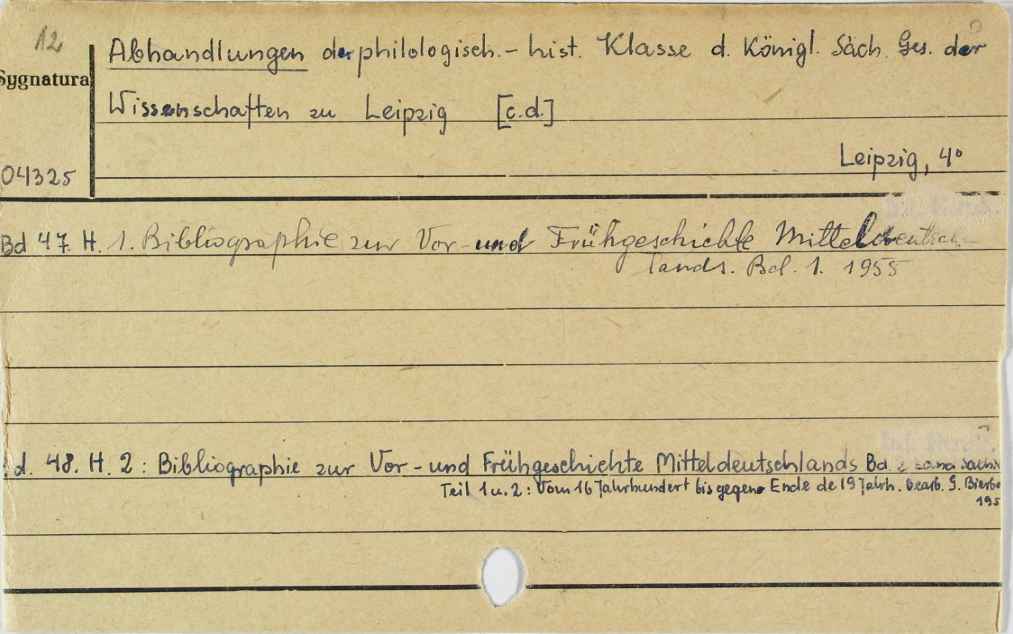 12
Abhandlungen der philologisch.- hist. Klasse d. Königl. Säch. Ges. der
Sygnatura
Wissenschaften zu Leipzig [c.d.]
Leipzig, 4°
04325
Bd 47. H. 1. Bibliographie zur Vor- und Frühgeschichte Mitteldeutsch-
lands. Bd. 1. 1955
d. 48. H. 2: Bibliographie zur Vor- und Frühgeschichte Mitteldeutschlands Bd. 2
Teil 1 u. 2: Vom 16 Jahrhundert bis gegen Ende de 19 Jahrh. bearb. G. Bierba
195